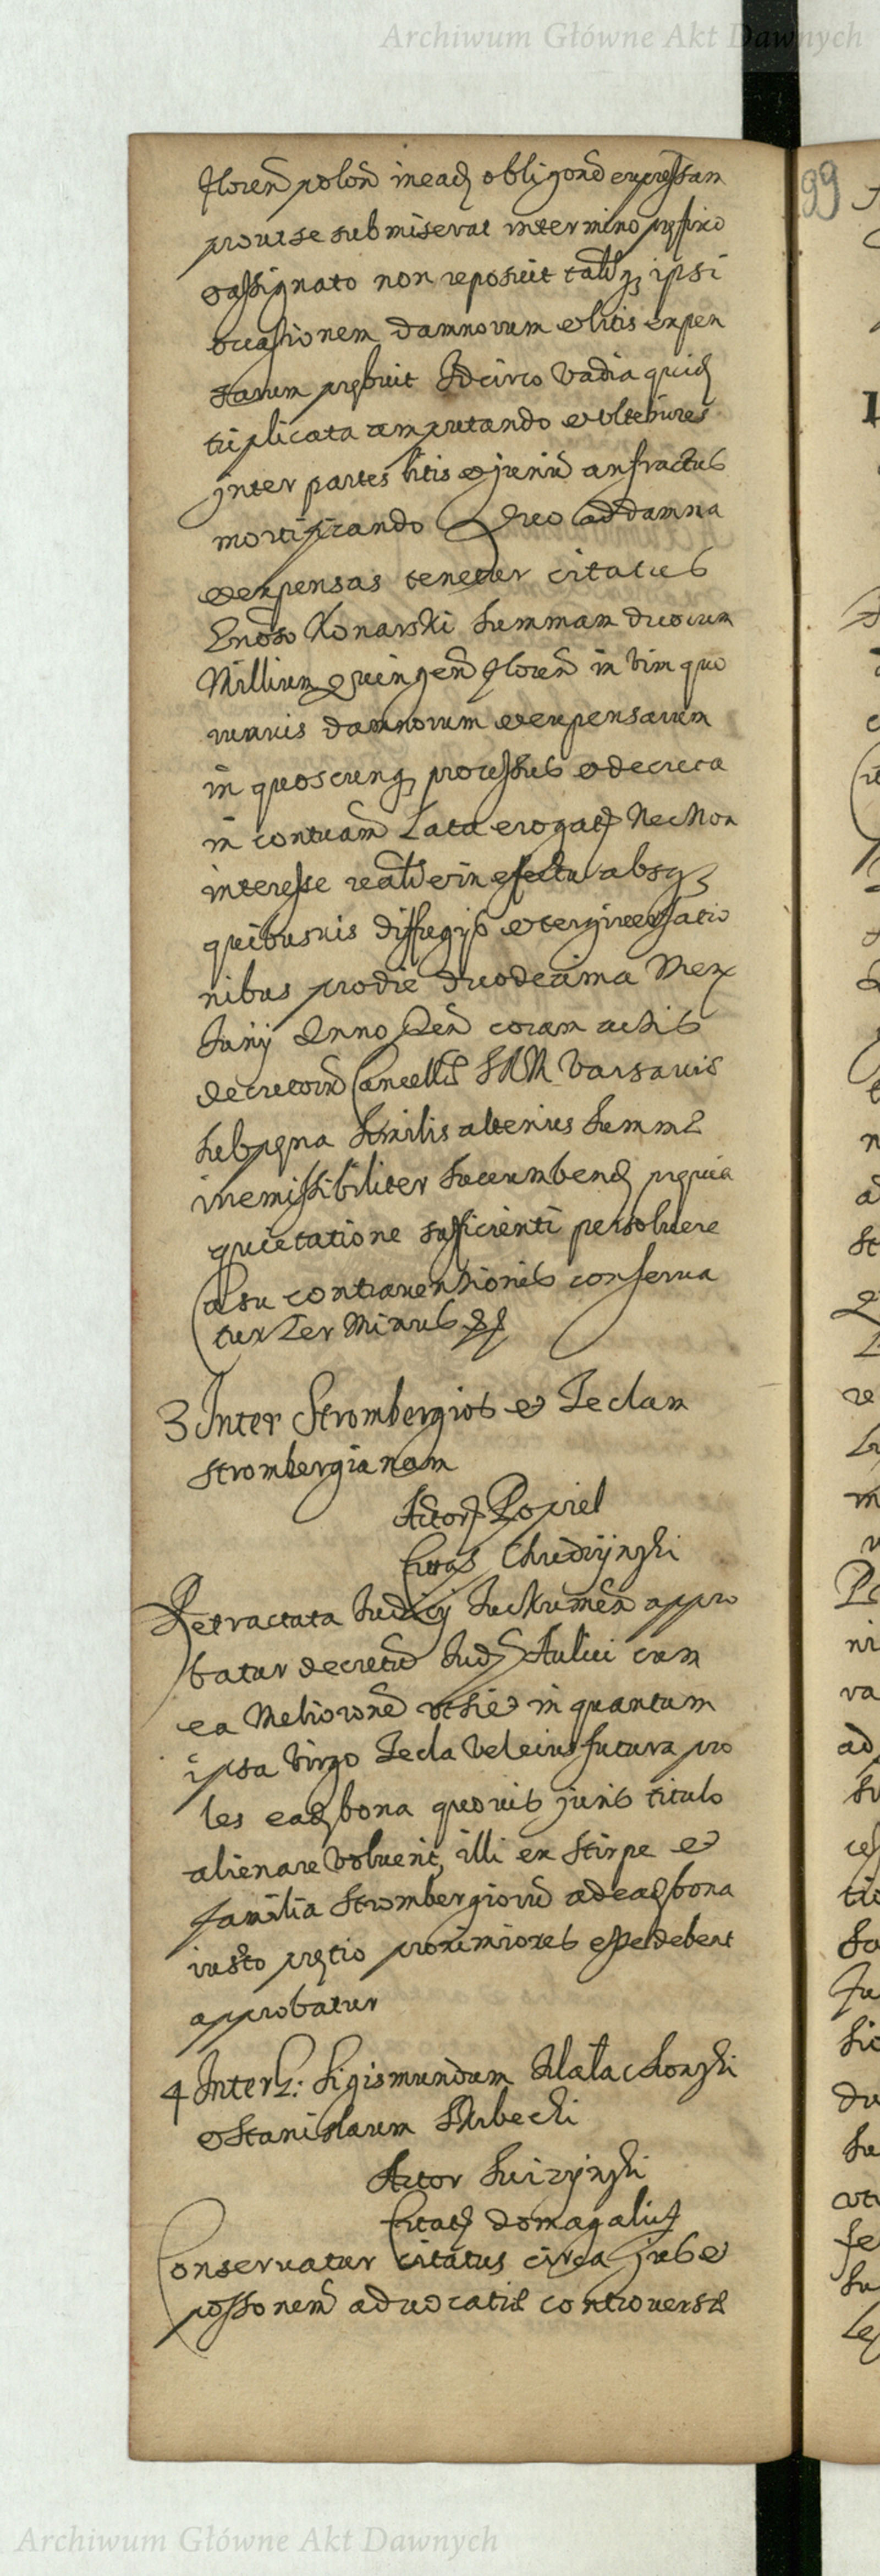 Archiwum Główne Akt Dawnych
99
Floren polon in ead obligone expressam
prout se submiserat in termino prefixo
et assignato non reposuit taliq ipsi
occasionem damnorum et litis expen
sarum prebuit Idcirco Vadia quid
triplicata amputando et ulteriores
inter partes litis et juriu anfractus
mortificando Quo ad damna
et expensas tenetur citatus
Gnoso Konarski Summam duorum
Millium quingen Floren in vim quo
rumvis damnorum et expensarum
in quoscunq processus et decreta
in contuam Lata erogat Nec Non
interesse realit et in efectu absq
quibusvis diffugijs et tergiversatio
nibus pro die duodecima Mens
Junij Anno Pren coram actis
decretoru Cancellis SRM Varsavis
sub pena similis alterius summe
irremissibiliter succumbend previa
quietatione sufficienti persolvere
Casu contraventionis conserva
tur Terminus
3 Inter Strombergios et Teclam
Strombergianam
Actor Popiel
Citat Chudzynski
Retractata Judicij Suchumen appro
batur decretu Jud Aulici cum
ea Meliorone ut si et in quantum
ipsa Virgo Tecla Vel eius futura pro
les ead bona quovis juris titulo
alienare voluerit, illi ex Stirpe et
familia Strombergioru ad ead bona
iusto pretio proximiores esse debent
approbatur
4 Inter G: Sigismundum Malachowski
et Stanislaum Srbecki
Actor Swizynski
Citat domagalius
Conservatur citatus circa jus et
possonem advocatie controverse
Archiwum Główne Akt Dawnych